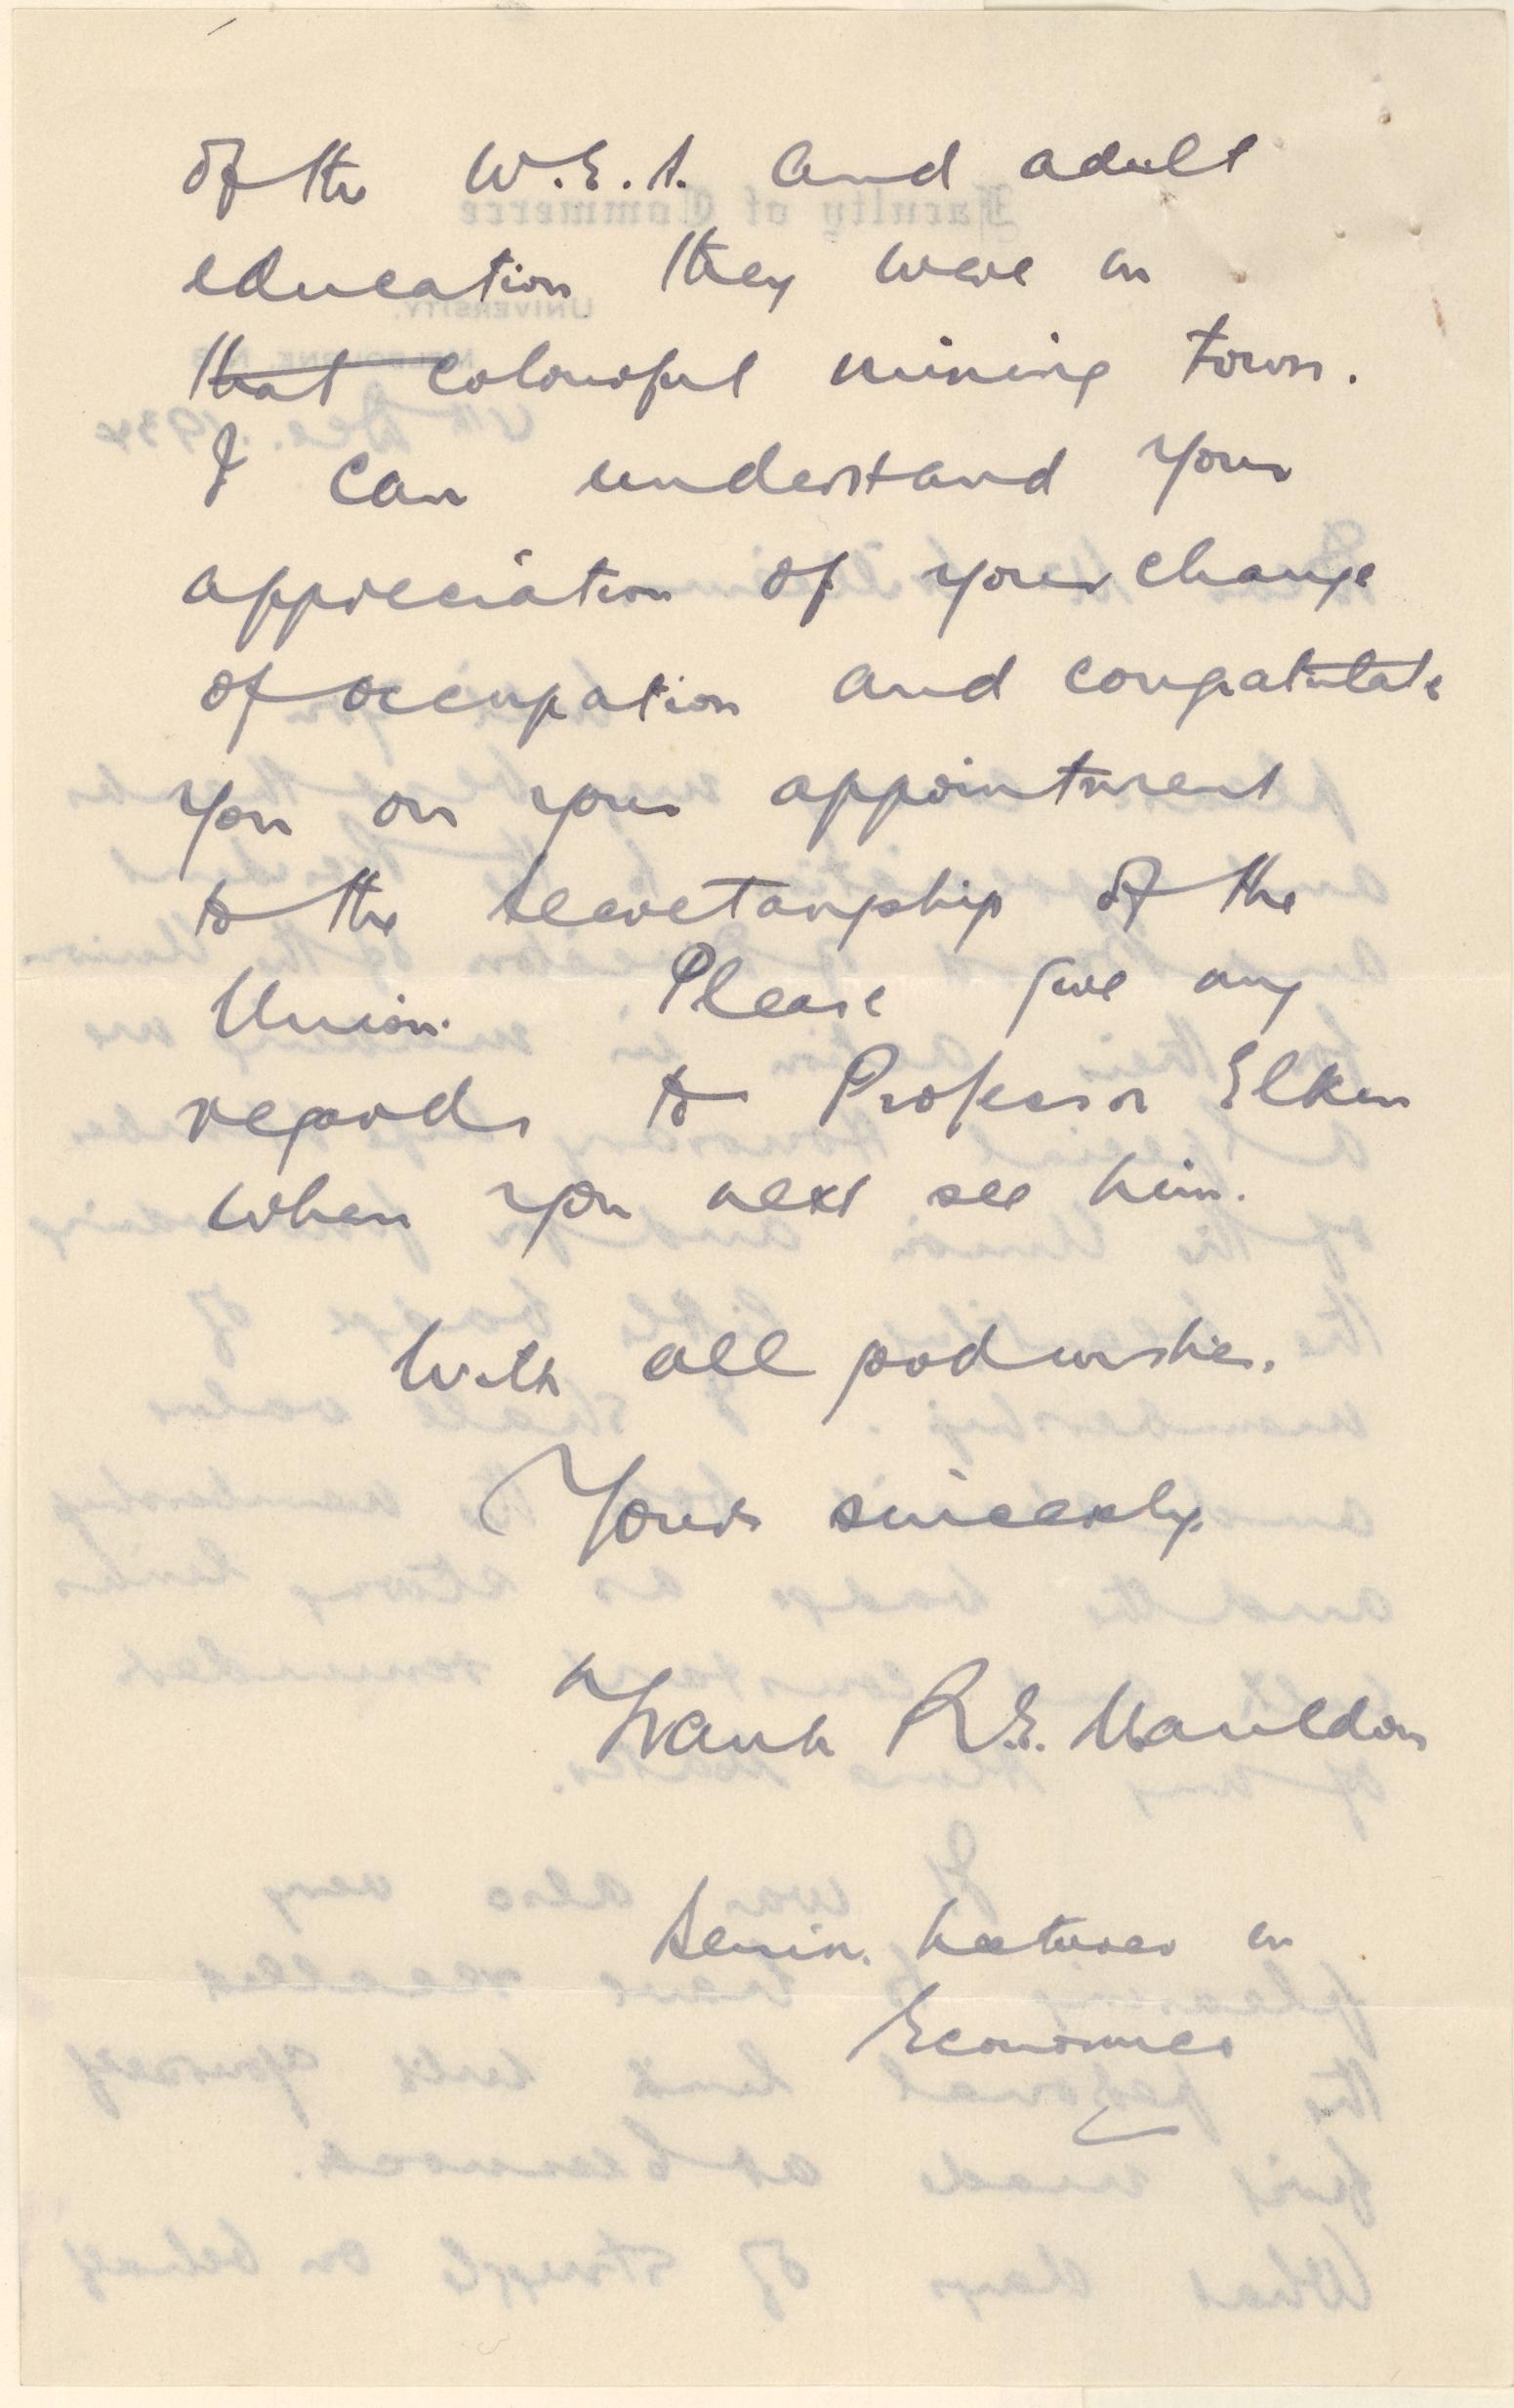 of the W.E.A. and adult
education they were in
that colourful mining town.
I can understand your
appreciation of your change
of occupation and congratulate
you on your appointment
to the Secretaryship of the
Union. Please give my
regards to Professor Elkin
when you next see him.
With all good wishes.
Yours sincerely
Frank R.E. Mauldon
Senior Lecturer in
Economics